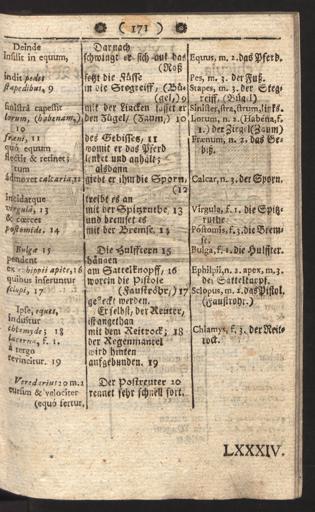 ( 171 )
Deinde
insilit in equum,
indit pedes
stapedibus, 9
sinistrâ capessit
lorum, (habenam,)
10
fræni, 11
quô equum
flectit & retinet;
tum
admovet calcaria, 12
incidatque
virgula, 13
& coërcet
postomide. 14
Bulga 15
pendent
ex ephippii apice, 16
quibus inseruntur
sclopi, 17
Ipse, eques,
induitur
chlamyde; 18
lacerna, f. 1.
à tergo
revincitur. 19
Veredarius 20 m. 2
cursim & velociter
(equô fertur.
Darnach
schwingt er sich auf das
(Roß
setzt die Füsse
in die Stegreiff, (Bü-
gel,) 9
mit der Lincken fasset er
den Zügel, (Zaum,) 10
des Gebisses, 11
womit er das Pferd
lencket und anhält;
alsdann
giebt er ihm die Sporn,
(12
treibet es an
mit der Spitzruthe, 13
und bremset es
mit der Bremse. 14
Die Hulfftern 15
hängen
am Sattelknopff, 16
worein die Pistole
(Fauströhr,) 17
gesteckt werden.
Er selbst, der Reuter,
ist angethan
mit dem Reitrock; 18
der Regenmantel
wird hinten
aufgebunden. 19
Der Postreuter 20
rennet sehr schnell fort.
Equus, m. 2. das Pferd.
Pes, m. 3. der Fuß.
Stapes, m. 3. der Steg-
reiff, (Bügel)
Sinister, stra, strum, links.
Lorum, n. 2. (Habena, f.
1.) der Zügel (Zaum)
Frænum, n. 2. das Ge-
biß.
Calcar, n. 3. der Sporn.
Virgula, f. 1. die Spitz-
ruthe.
Postomis, f. 3. die Brem-
se.
Bulga, f. 1. die Hulffter.
Ephippii, n. 2. apex, m. 3.
der Sattelknopf.
Sclopus, m. 2. das Pistol,
(Faustrohr.)
Chlamys, f. 3. der Reit-
rock.
LXXXIV.